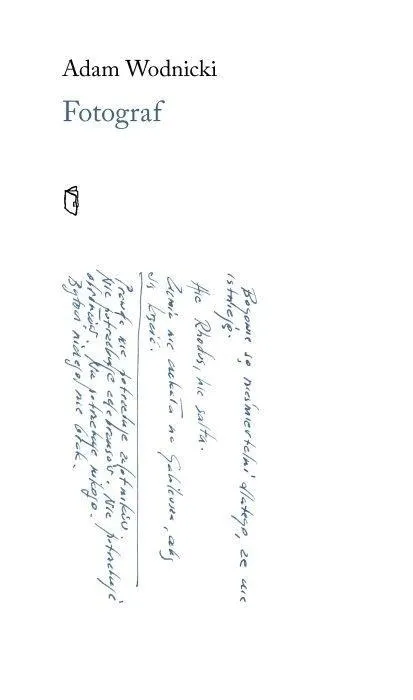 Adam Wodnicki
Fotograf
Bogowie są nieśmiertelni dlatego, że nie
istnieją.
Hic Rhodus, hic salta.
Ziemia nie czekała na Galileusza, aby
się kręcić.
Prawda nie potrzebuje zalotników.
Nie potrzebuje celebransów. Nie potrzebuje
obrońców. Nie potrzebuje nikogo.
Bytowi niczego nie brak.